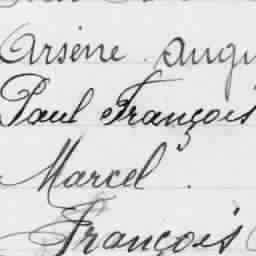 Arsène Augu
Paul François
Marcel.
François